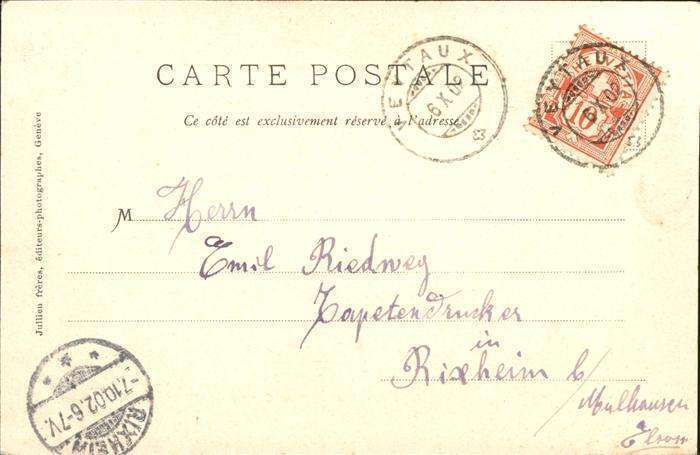 CARTE POSTALE
Ce côté est exclusivement réservé à l'adresse.
VEYTAUX
6 X 02
VEYTAUX
6 X 02
10
M Herrn
Emil Riedweg
Tapetendrucker
in
Rixheim b/
Mulhausen
Julien frères, éditeurs-photographes, Genève
RIXHEIM
7.10.02.6-7V.